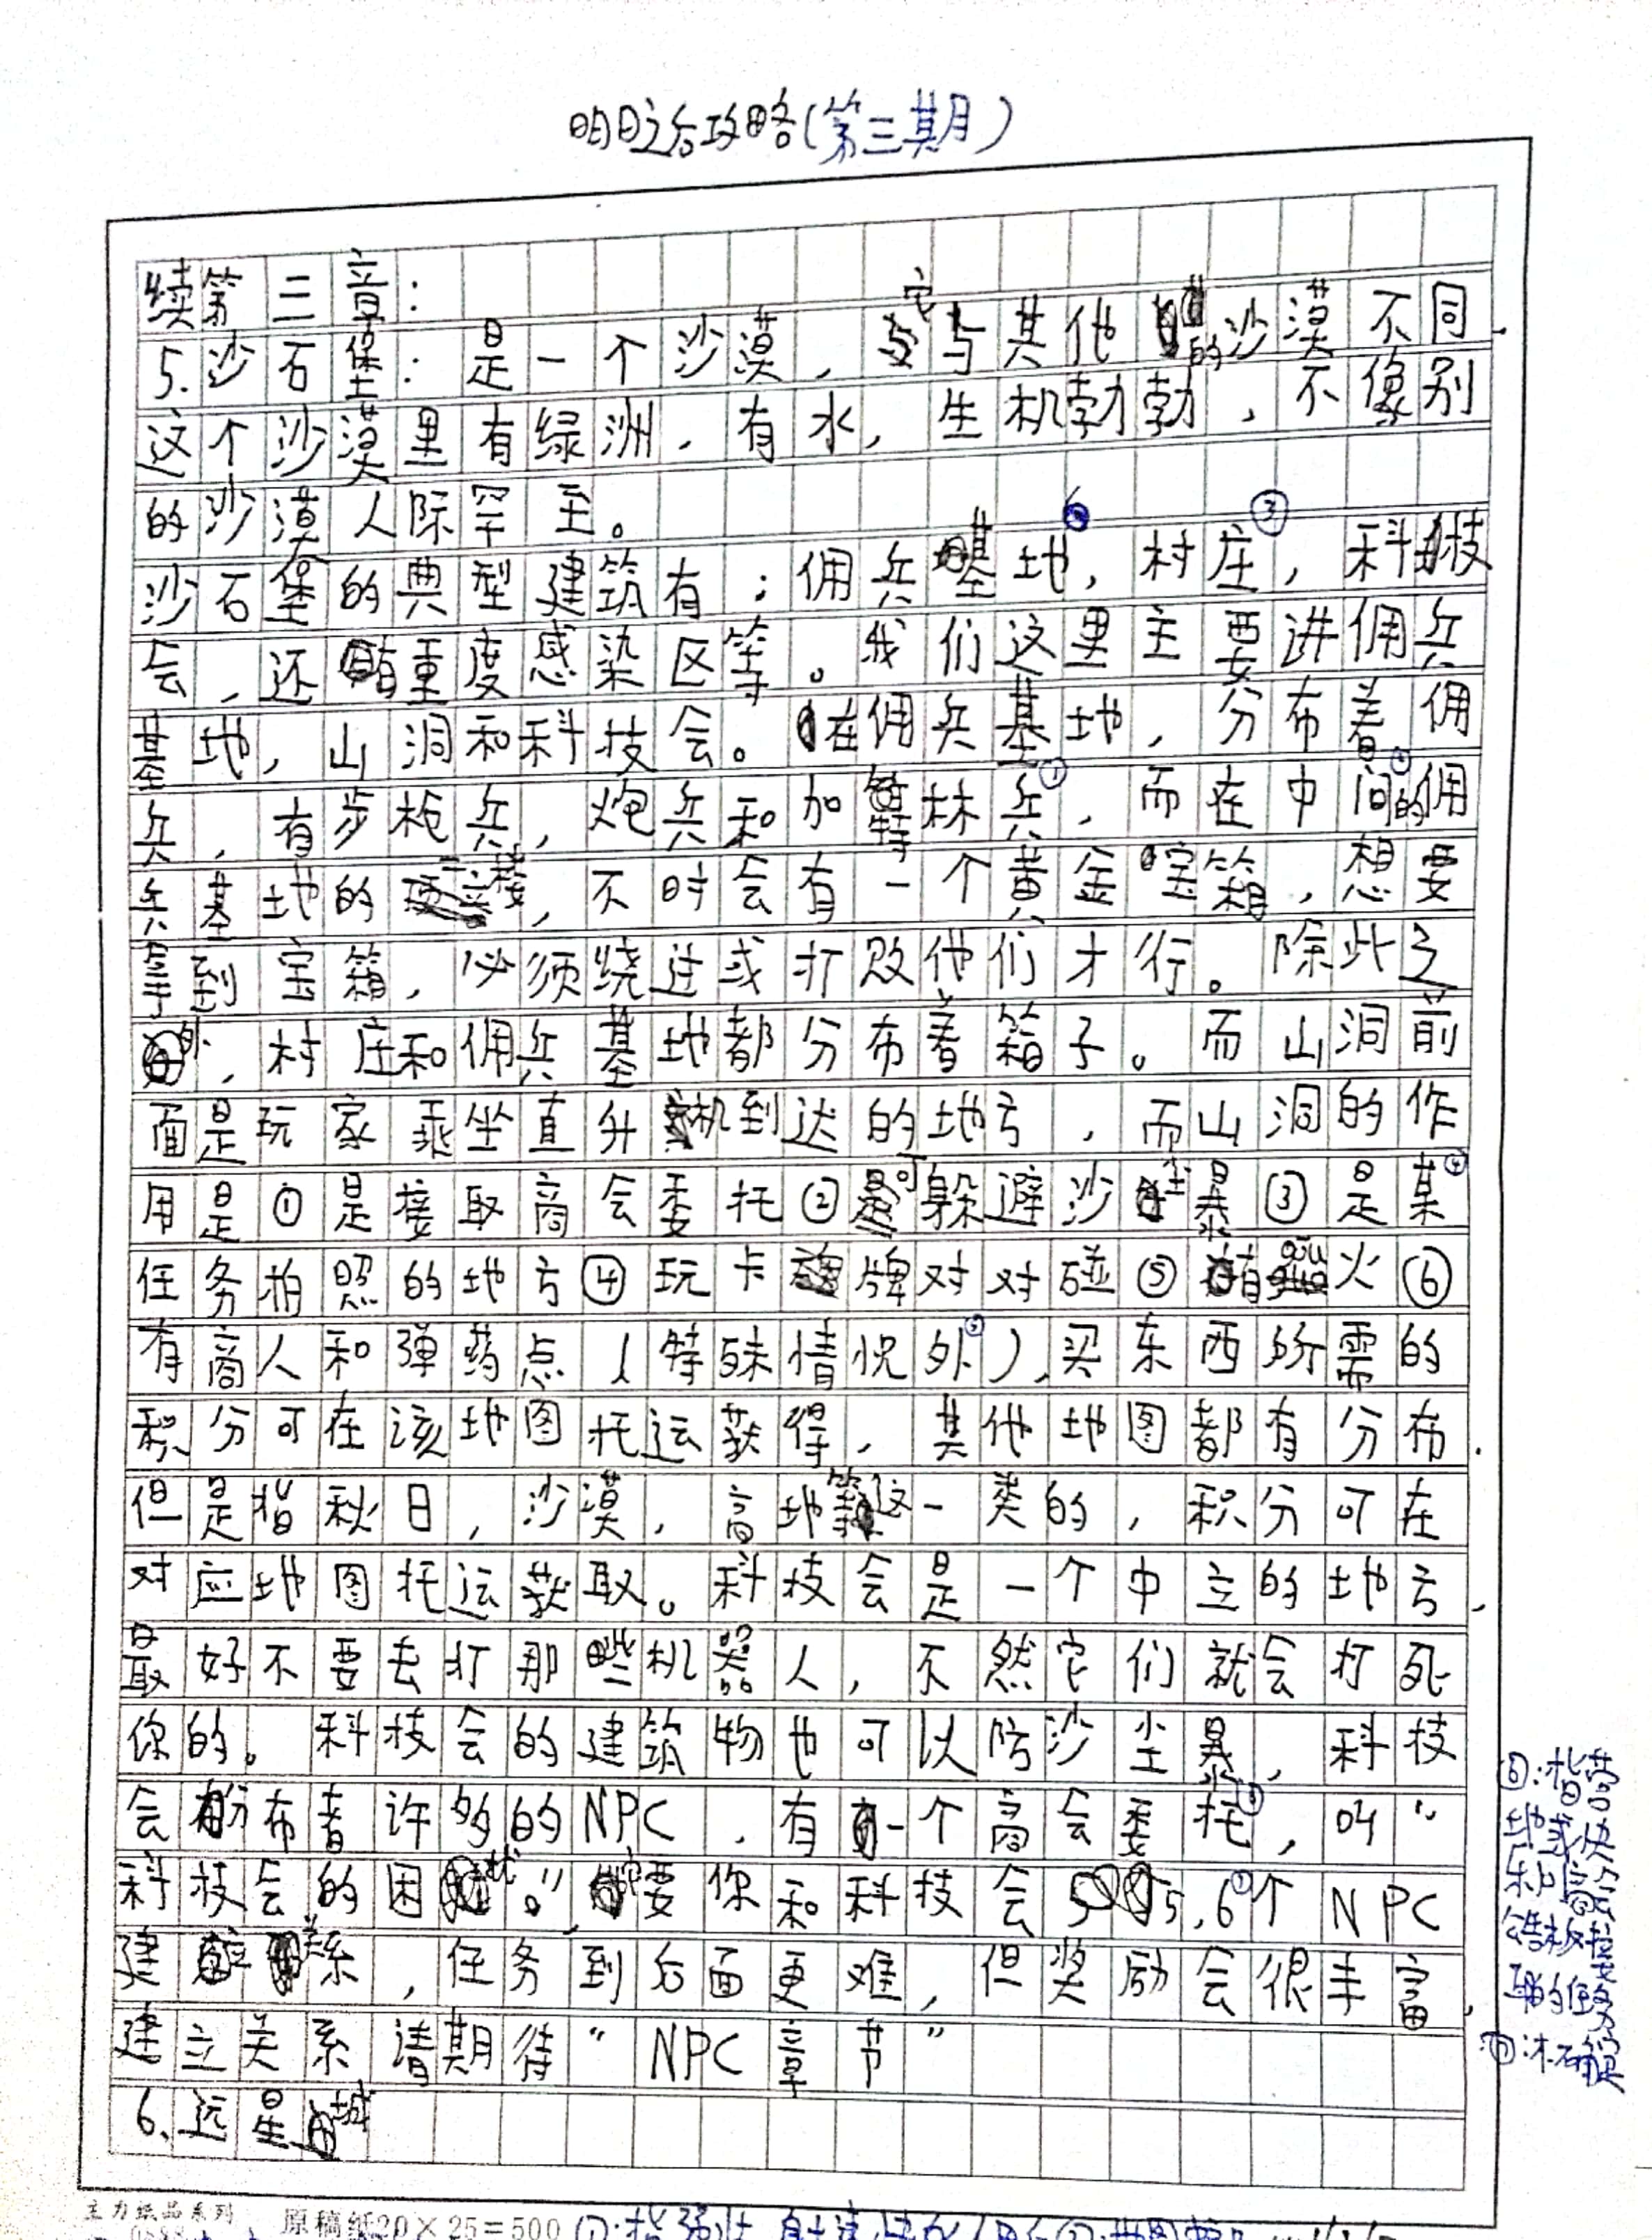 明日之后攻略(第三期)
续第三章:
5.沙石堡:是一个沙漠,它与其他的沙漠不同,
这个沙漠里有绿洲,有水,生机勃勃,不像别
的沙漠人际罕至。
沙石堡的典型建筑有:佣兵基地,村庄③,科技
会,还有重度感染区等。我们这里主要讲佣兵
基地,山洞和科技会。在佣兵基地,分布着佣
兵,有步枪兵,炮兵和加特林兵①,而在中间②的佣
兵基地的二楼,不时会有一个黄金宝箱,想要
拿到宝箱,必须绕过或打败他们才行。除此之
外,村庄和佣兵基地都分布着箱子。而山洞前
面是玩家乘坐直升机到达的地方,而山洞的作
用是①是接取商会委托②可躲避沙尘暴③是某④
任务拍照的地方④玩卡牌对对碰⑤有篝火⑥
有商人和弹药点(特殊情况外⑤),买东西所需的
积分可在该地图托运获得,其他地图都有分布,
但是指秋日,沙漠,高地等这一类的,积分可在
对应地图托运获取。科技会是一个中立的地方,
最好不要去打那些机器人,不然它们就会打死
你的。科技会的建筑物也可以防沙尘暴,科技
会分布着许多的NPC,有一个商会委托⑥,叫“
科技会的困扰。”,它要你和科技会5,6⑦个NPC
建关系,任务到后面更难,但奖励会很丰富,
建立关系请期待“NPC章节”
6.远星城
⑥:指营
地或历
东口商会
公告板接
取的任务
⑦:不确定
主力纸品系列
原稿纸20×25=500